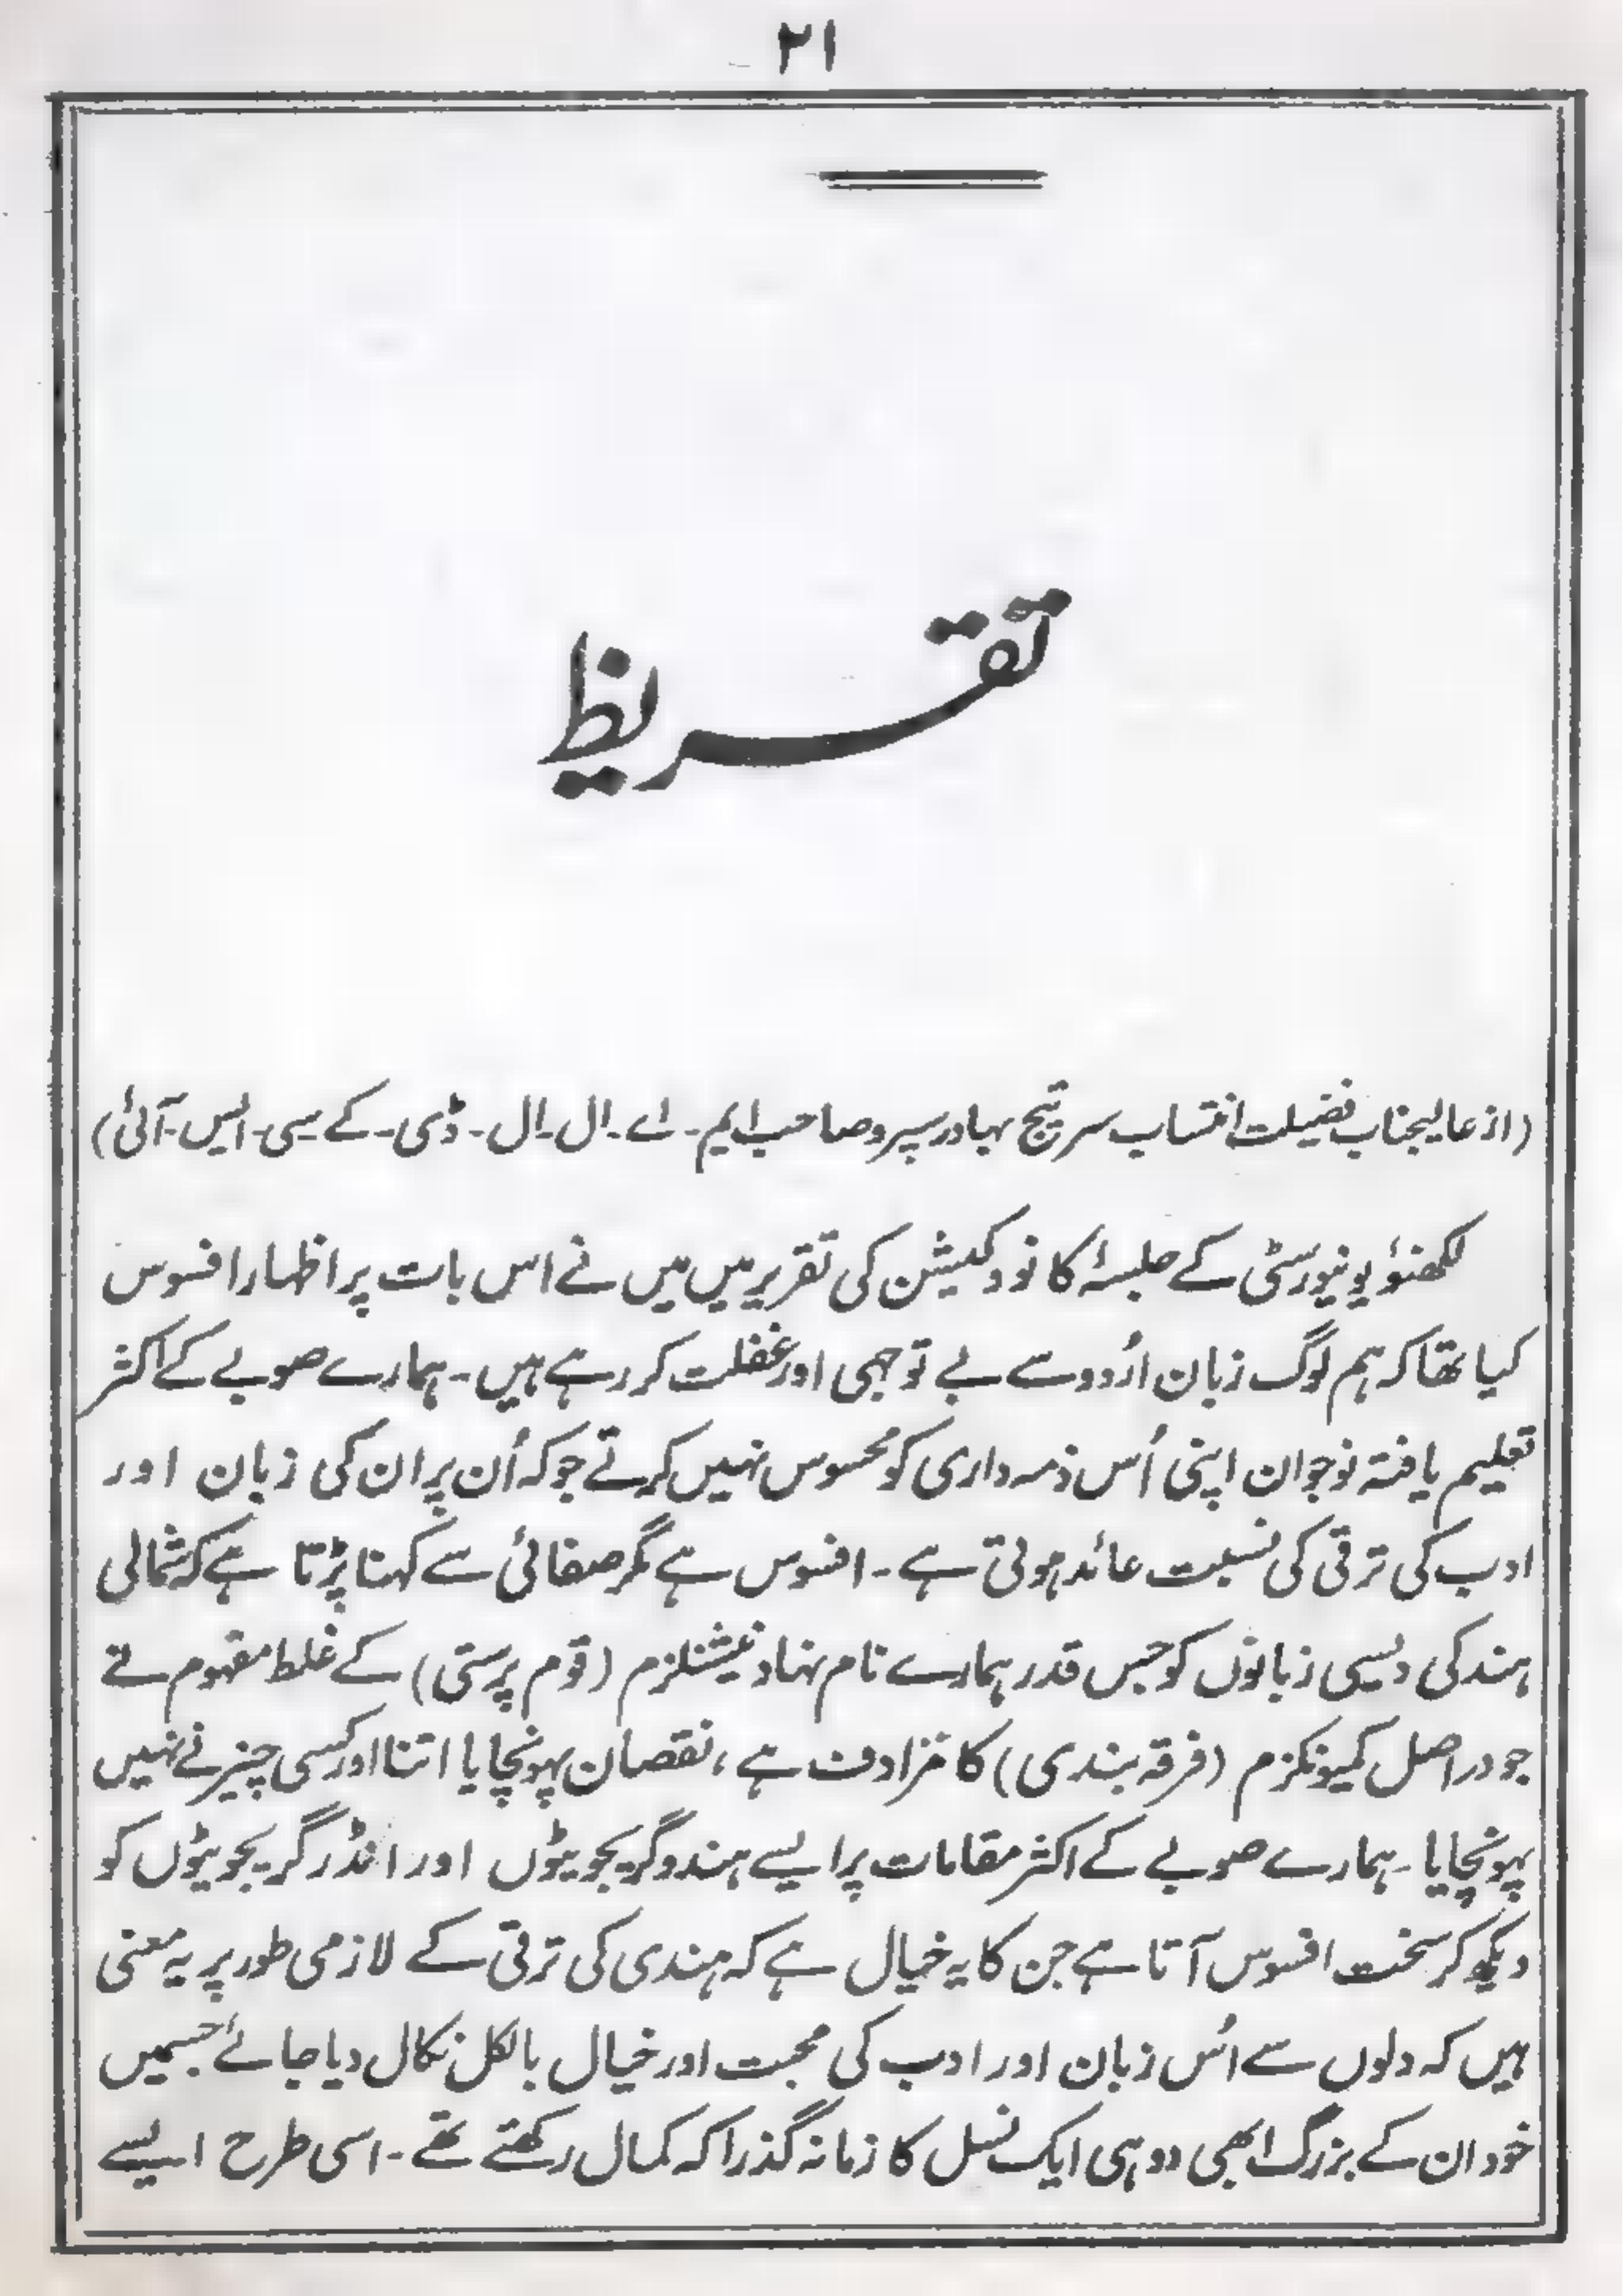 ۲۱
تقریظ
(از عالیجناب فضیلت انتساب سر تیج بہادر سپرو صاحب ایم۔ اے۔ ال۔ ال۔ ڈی۔ کے۔ سی۔ ایس۔ آئی)
لکھنؤ یونیورسٹی کے جلسۂ کانووکیشن کی تقریر میں میں نے اس بات پر اظہار افسوس
کیا تھا کہ ہم لوگ زبان اُردو سے بے توجہی اور غفلت کر رہے ہیں۔ ہمارے صوبے کے اکثر
تعلیم یافتہ نوجوان اپنی اُس ذمہ داری کو محسوس نہیں کرتے جو کہ اُن پر ان کی زبان اور
ادب کی ترقی کی نسبت عائد ہوتی ہے۔ افسوس ہے مگر صفائی سے کہنا پڑتا ہے کہ شمالی
ہند کی دیسی زبانوں کو جس قدر ہمارے نام نہاد نیشنلزم (قوم پرستی) کے غلط مفہوم نے
جو در اصل کمیونلزم (فرقہ بندی) کا مرادف ہے، نقصان پہونچایا اتنا اور کسی چیز نے نہیں
پہونچایا۔ ہمارے صوبے کے اکثر مقامات پر ایسے ہندو گریجویٹوں اور انڈر گریجویٹوں کو
دیکھ کر سخت افسوس آتا ہے جن کا یہ خیال ہے کہ ہندی کی ترقی کے لازمی طور پر یہ معنی
ہیں کہ دلوں سے اُس زبان اور ادب کی محبت اور خیال بالکل نکال دیا جائے جسمیں
خود ان کے بزرگ ابھی دو ہی ایک نسل کا زمانہ گذرا کہ کمال رکھتے تھے۔ اسی طرح ایسے